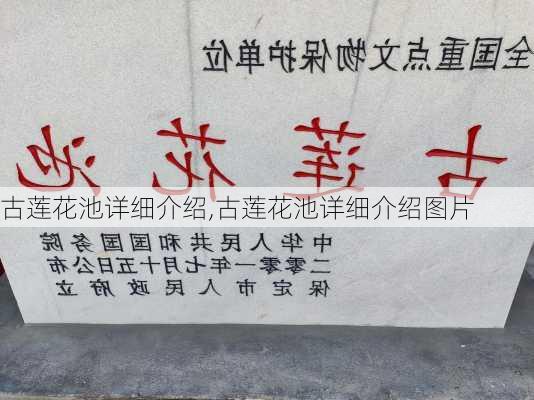 全国重点文物保护单位
古莲花池
古莲花池详细介绍,古莲花池详细介绍图片
中华人民共和国国务院
二零零一年七月十五日公布
保定市人民政府立